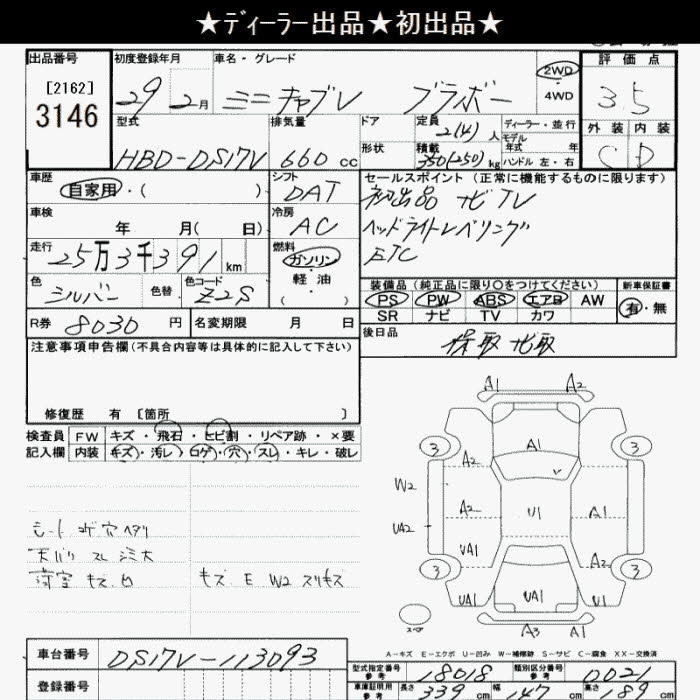 ★ディーラー出品★初出品★
出品番号 初度登録年月 車名・グレード 評価点
[2162]
3146
29年2月 ミニキャブV ブラボー 2WD・4WD 3.5
外装 内装
C D
型式 排気量 ドア 定員 2(4)人 ディーラー・並行
モデル年式 年
HBD-DS17V 660cc 形状 積載 350(250)kg ハンドル 左・右
車歴 自家用・( ) シフト DAT
セールスポイント(正常に機能するものに限ります)
初出品 ナビTV
ヘッドライトレベリング
ETC
車検 年 月(日) 冷房 AC
走行 25万3千391km 燃料 ガソリン・軽油・( )
色 シルバー 色替 色コード Z2S
装備品(純正品に限り○をつけてください) 新車保証書
PS PW ABS エアB AW 有・無
SR ナビ TV カワ
R券 8030円 名変期限 月 日
後日品 保取 ナビ取
注意事項申告欄(不具合内容等は具体的に記入して下さい)
修復歴 有 [箇所 ]
検査員 FW キズ・飛石・ヒビ割・リペア跡・×要
記入欄 内装 キズ・汚レ・コゲ・穴・スレ・キレ・破レ
シート コゲ穴ヘタリ
天バリ スレ
荷室 キズ凹 キズ E W2 スリキズ
A1 A2
3 A1 3
A2
W2 A2 U1 A1
UA2
UA1 A2
3 3
UA1 UA1 A1
スペア A3 A1
A-キズ E-エクボ U-凹み W-補修跡 S-サビ C-腐食 XX-交換済
車台番号 DS17V-113093
登録番号
型式指定番号 参考 18018 類別区分番号 参考 0021
車庫証明用 参考 長さ 339cm 幅 147cm 高さ 189cm